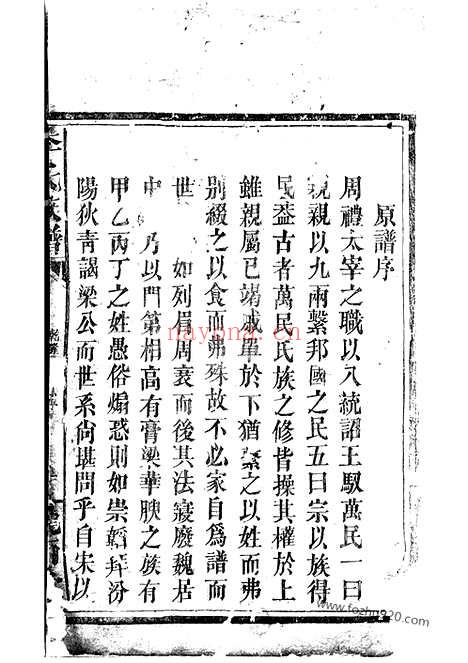 原譜序
周禮太宰之職以八統詔王馭萬民一曰
親親以九兩繫邦國之民五曰宗以族得
民蓋古者萬民氏族之修皆操其權於上
雖親屬已竭戚單於下猶繫之以姓而弗
別綴之以食而弗殊故不必家自爲譜而
世 如列眉周衰而後其法寖廢魏居
中 乃以門第相高有膏粱華腴之族有
甲乙丙丁之姓愚俗煽惑則如崇韜拜汾
陽狄青謁梁公而世系尙堪問乎自宋以
族譜
nayona.cn
www.fozhu920.com